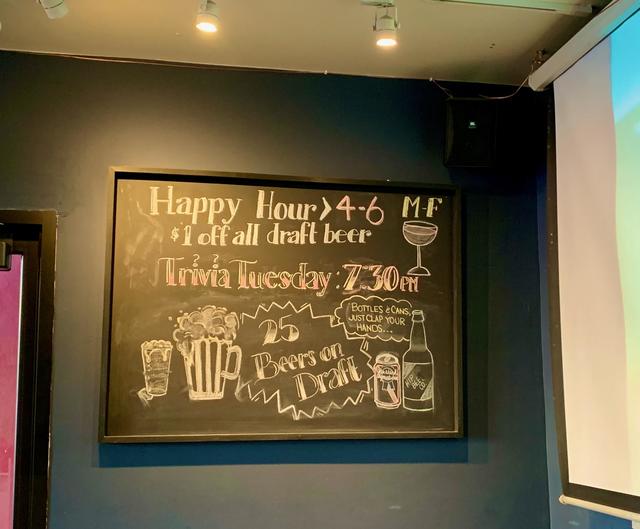 Happy Hour > 4-6 M-F
$1 off all draft beer
Trivia Tuesday: 7:30PM
25
Beers on
Draft
BOTTLES & CANS,
JUST CLAP YOUR
HANDS...
JBL